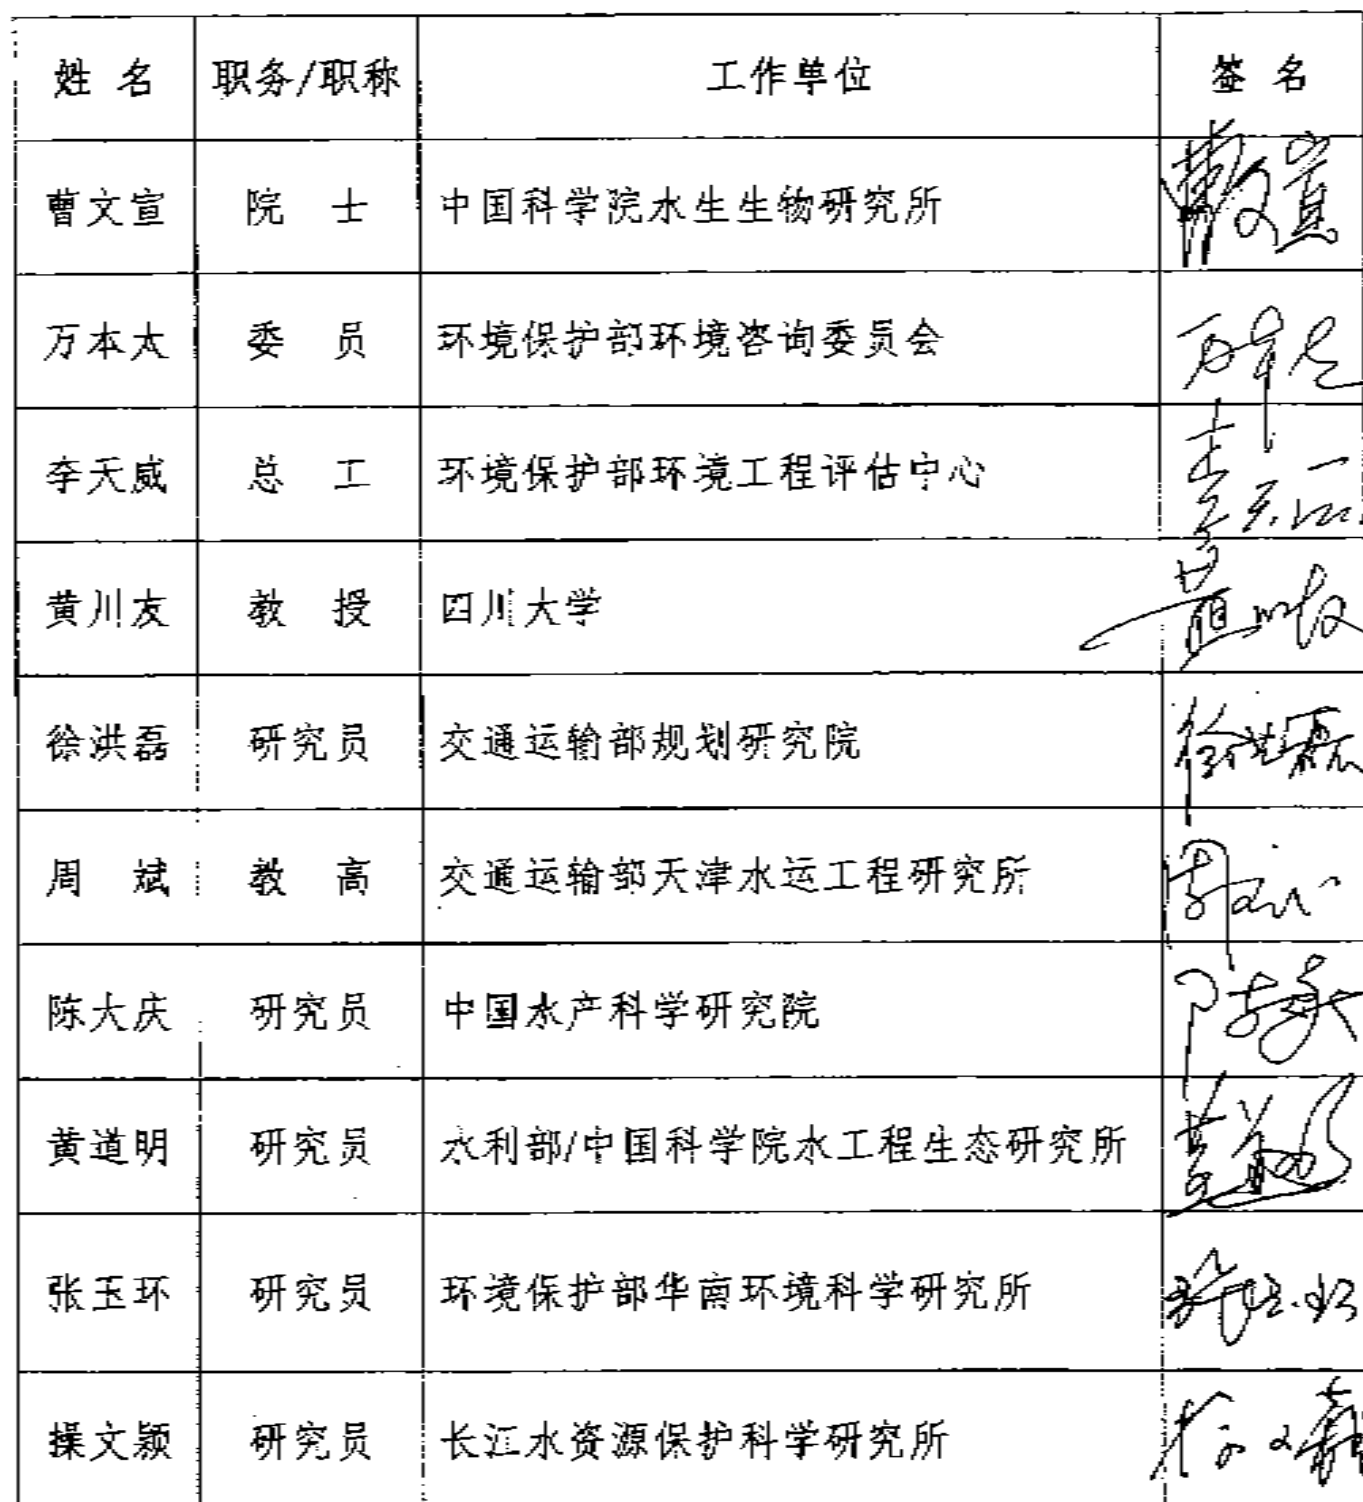 姓 名 职务/职称 工作单位 签 名
曹文宣 院 士 中国科学院水生生物研究所 曹文宣
万本太 委 员 环境保护部环境咨询委员会 万本太
李天威 总 工 环境保护部环境工程评估中心 李天威
黄川友 教 授 四川大学 黄川友
徐洪磊 研究员 交通运输部规划研究院 徐洪磊
周 斌 教 高 交通运输部天津水运工程研究所 周斌
陈大庆 研究员 中国水产科学研究院 陈大庆
黄道明 研究员 水利部/中国科学院水工程生态研究所 黄道明
张玉环 研究员 环境保护部华南环境科学研究所 张玉环
操文颖 研究员 长江水资源保护科学研究所 操文颖